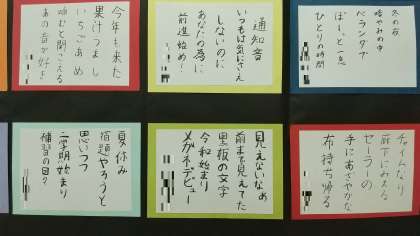 冬の夜
暗やみの中
ベランダで
ぼーっと一息
ひとりの時間
通知音
いつもは気にさえ
しないのに
あなたの為に
前進始め!
今年も来た
果汁つまし
いちごあめ
噛むと聞こえる
あの音が好き
チャイムなり
廊下にみえる
セーラーの
手にあざやかな
布持ち帰る
見えないなぁ
前見て見えてた
黒板の文字
令和始まり
メガネデビュー
夏休み
宿題やろうと
思いつつ
二学期始まり
補習の日?